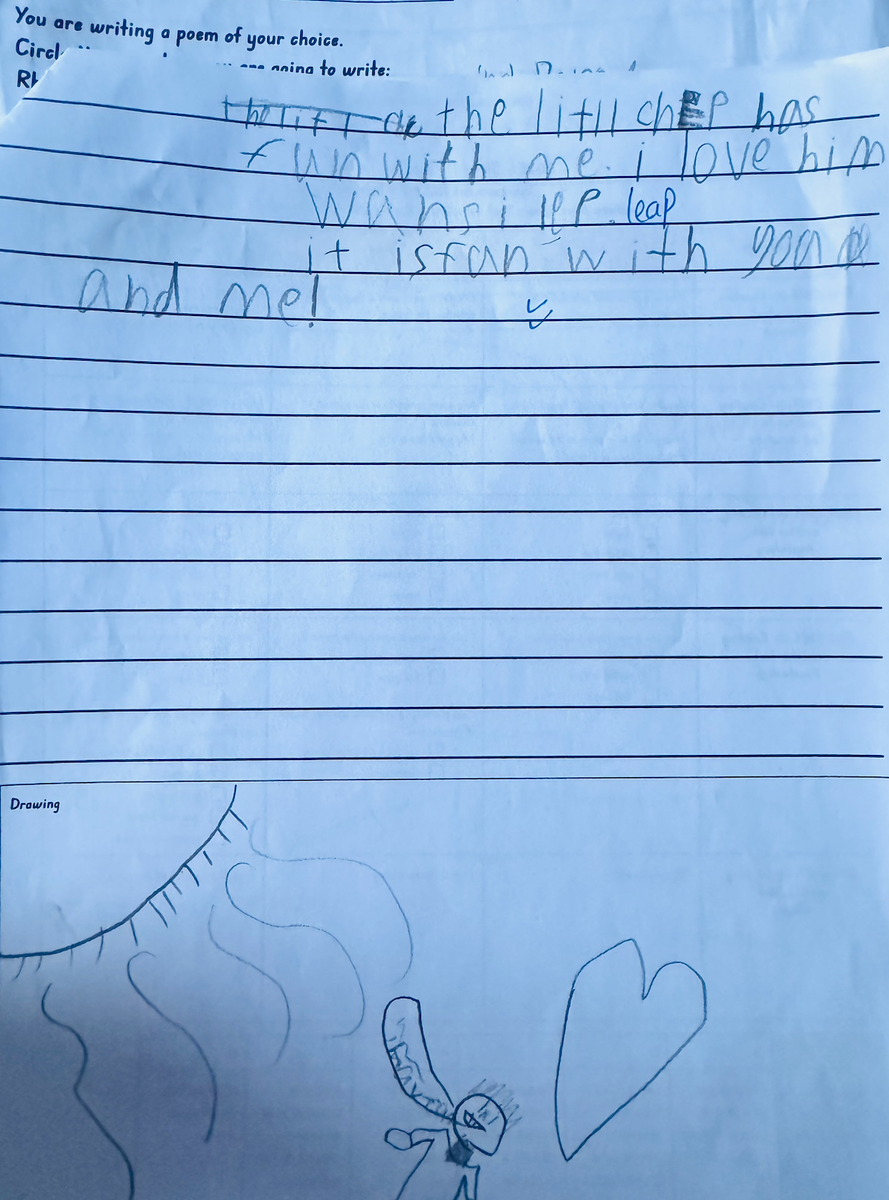 You are writing a poem of your choice.
going to write:
the litll chEP has
fun with me. i love him
wans i leP. leap
it is fan with you
and me!
Drawing